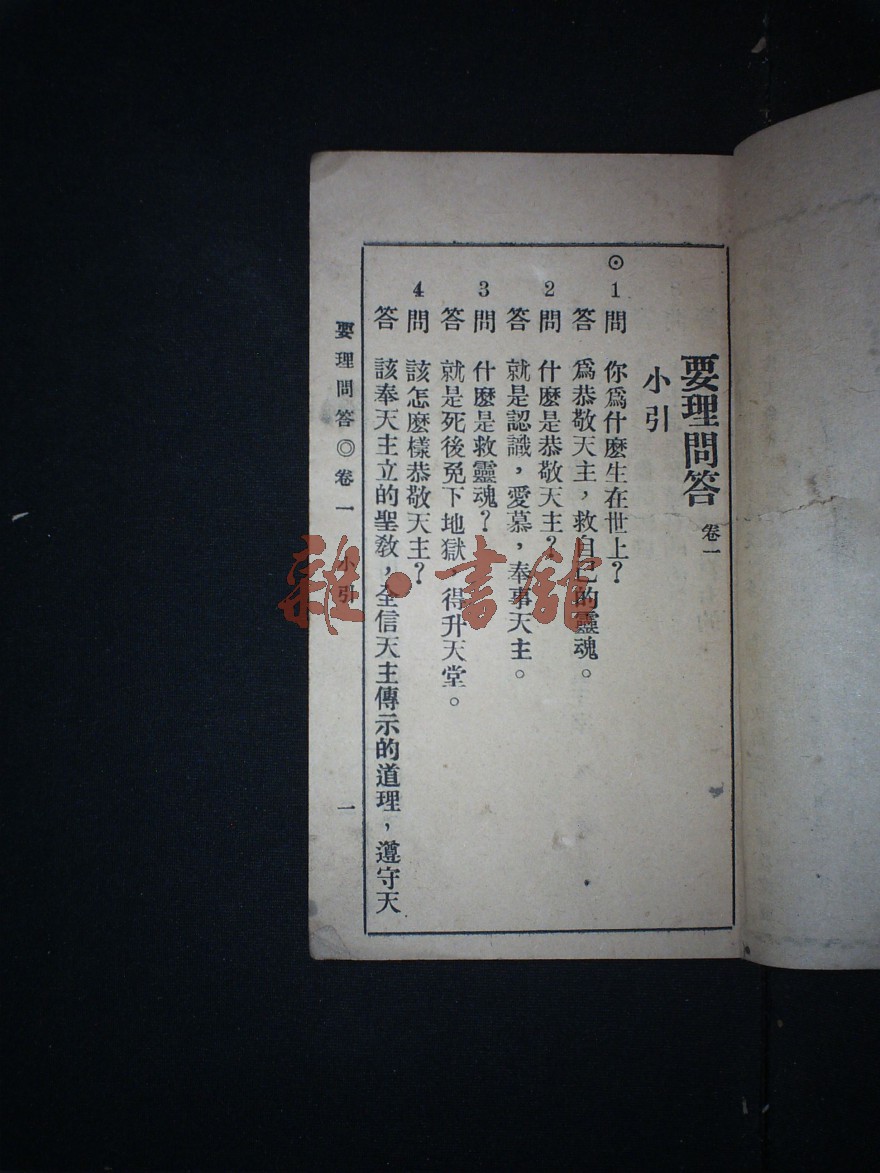 要理問答 卷一
小引
⊙1 問 你爲什麽生在世上？
答 爲恭敬天主，救自己的靈魂。
2 問 什麽是恭敬天主？
答 就是認識，愛慕，奉事天主。
3 問 什麽是救靈魂？
答 就是死後免下地獄，得升天堂。
4 問 該怎麽樣恭敬天主？
答 該奉天主立的聖教，全信天主傳示的道理，遵守天
要理問答◎卷一 小引 一
雜·書館